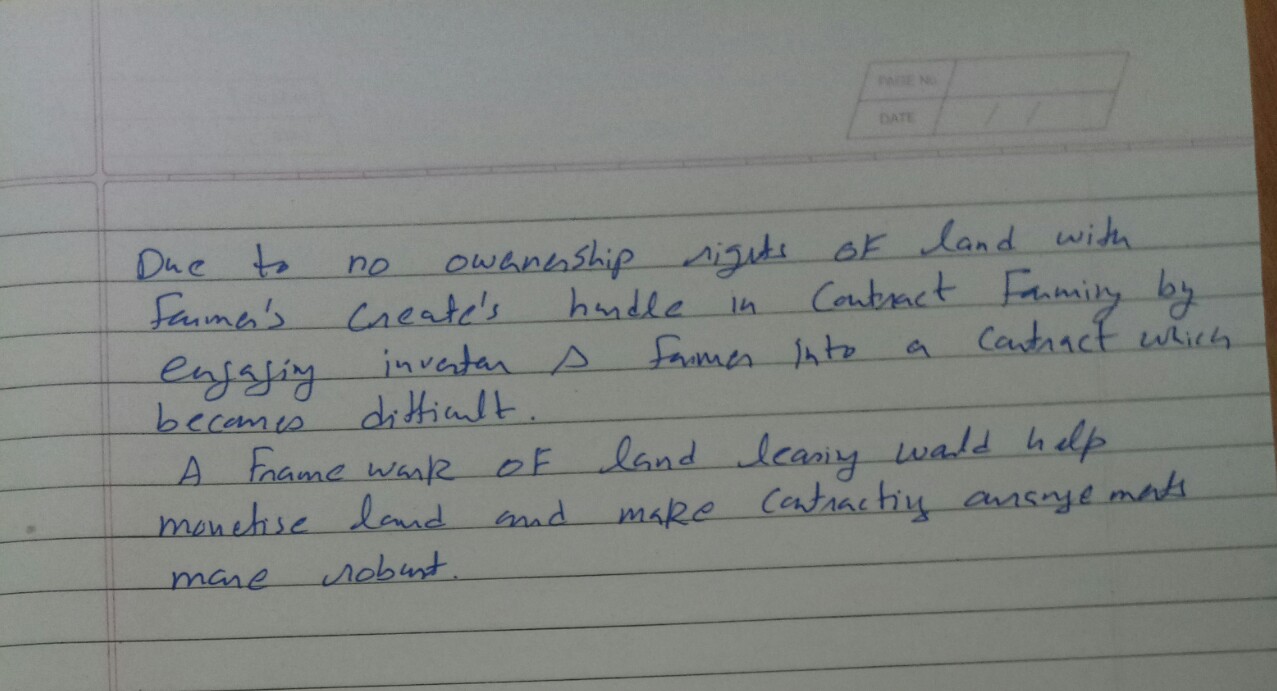 PAGE No.
DATE / /
Due to no ownership rights of land with
farmer's create's hurdle in Contract Farming by
engaging investor & farmer into a contract which
becomes difficult.
A Frame work of land leasing would help
monetise land and make Contracting arrange ments
more robust.